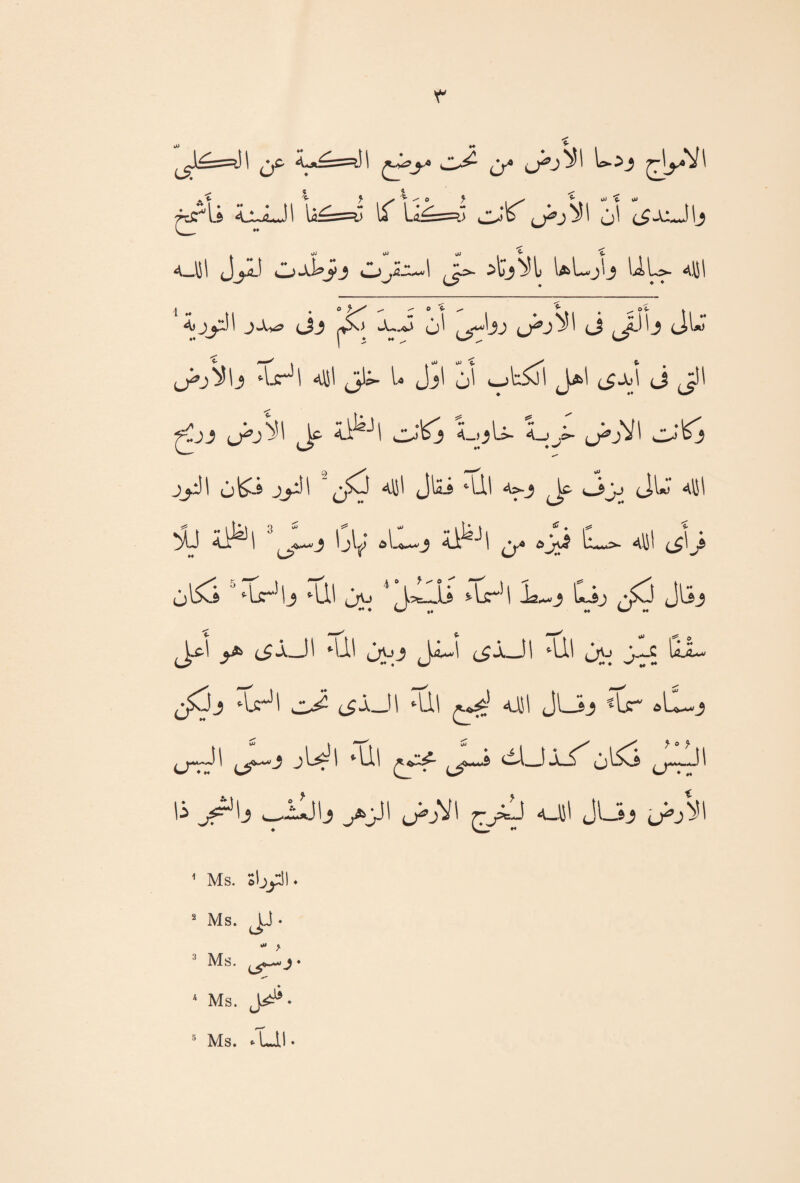 ٣
الامواج ودحا الارض من تحت موضع الكعبة عن الكلبيّ
والسدىّ أنّ الأرض كانت تكفأ كما تكفأ السفينة فأشج
الله جبالها وارساها بالأوتاد حتى استقرّت وتوطّدت لقول اللـه
تعالى وألقى فى الأرض رواسِىَ أنْ تميد بكُم وفى صدر التورية ¹
التى فى أيدى أهل الكتاب أنّ أوّل ما خلق الله السماء والأرض
وكانت الأرض خربة خاوية وكانت الظلمة على الأرض وريح
الله تعالى يزفّ على وجه الماء فقال الله ليكن ² النور فكان النور
فرأى الله حسنًا فميّزه من الظلمة وسماه نهارًا وسمّى ³ الظلمة ليلًا
وقال ليكن رقيعًا وسط السماء فليَحُلْ ⁴ بين الماء والسماء ⁵ فكان
سقفًا يميّز بين الماء الـذى أسفل وبين الماء الـذى هو أعلى
وسماه سماء وقال الله ليجمع الماء الـذى تحت السماء وليكن
اليُبْسُ فكان كـذلك فسمّى مجمع الماء البحار وسمّى اليبس
الأرض وقال اللـه لتُخرج الأرض الزهر والعُشْب والشجر ذا
¹ Ms. التورىاة.
² Ms. لىل.
³ Ms. وسُمّى.
⁴ Ms. فلىحل.
⁵ Ms. الماء.